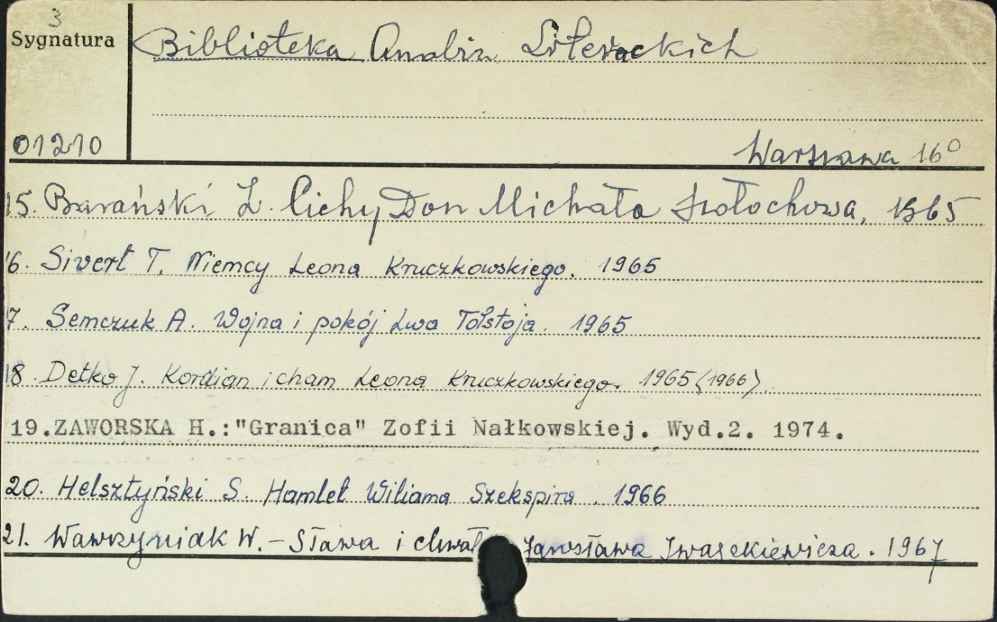 3
Sygnatura
Biblioteka Analiz Literackich
01210
Warszawa 16°
15. Barański Z. Cichy Don Michała Szołochowa, 1965
16. Sivert T. Niemcy Leona Kruczkowskiego. 1965
17. Semczuk A. Wojna i pokój Lwa Tołstoja. 1965
18. Detko J. Kordian i cham Leona Kruczkowskiego. 1965 (1966)
19.ZAWORSKA H.:"Granica" Zofii Nałkowskiej. Wyd.2. 1974.
20. Helsztyński S. Hamlet Wiliama Szekspira. 1966
21. Wawrzyniak W. - Sława i chwał Jarosława Iwaszkiewicza. 1967